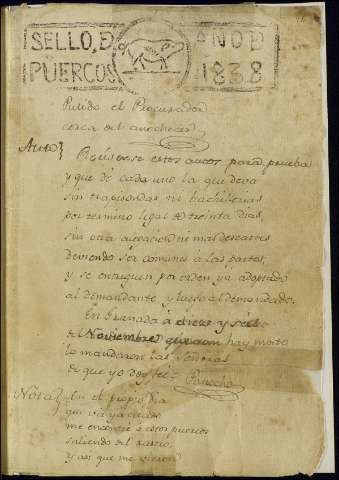 SELLO, D AÑO D
PUERCOS 1838
Pulido el Procurador
cerca del anochecer
Auto} Recívanse estos autos para prueba
y que dé cada uno la que deva
sin trapisondas ni bachillerias
por termino legal de treinta dias,
sin otra ni mas descartes
deviendo sér comunes á las partes,
y se entriguen por orden yá adoptado
al demandante y luego al demandado.
En Granada á dieze y séis
del Noviembre que aun hay mosto
lo mandaron las Señoras
de que yo doy feé = Panocho
Nota} En el propio dia
que vá yá citado
me encontré á estos puercos
saliendo del
y asi que me vieron